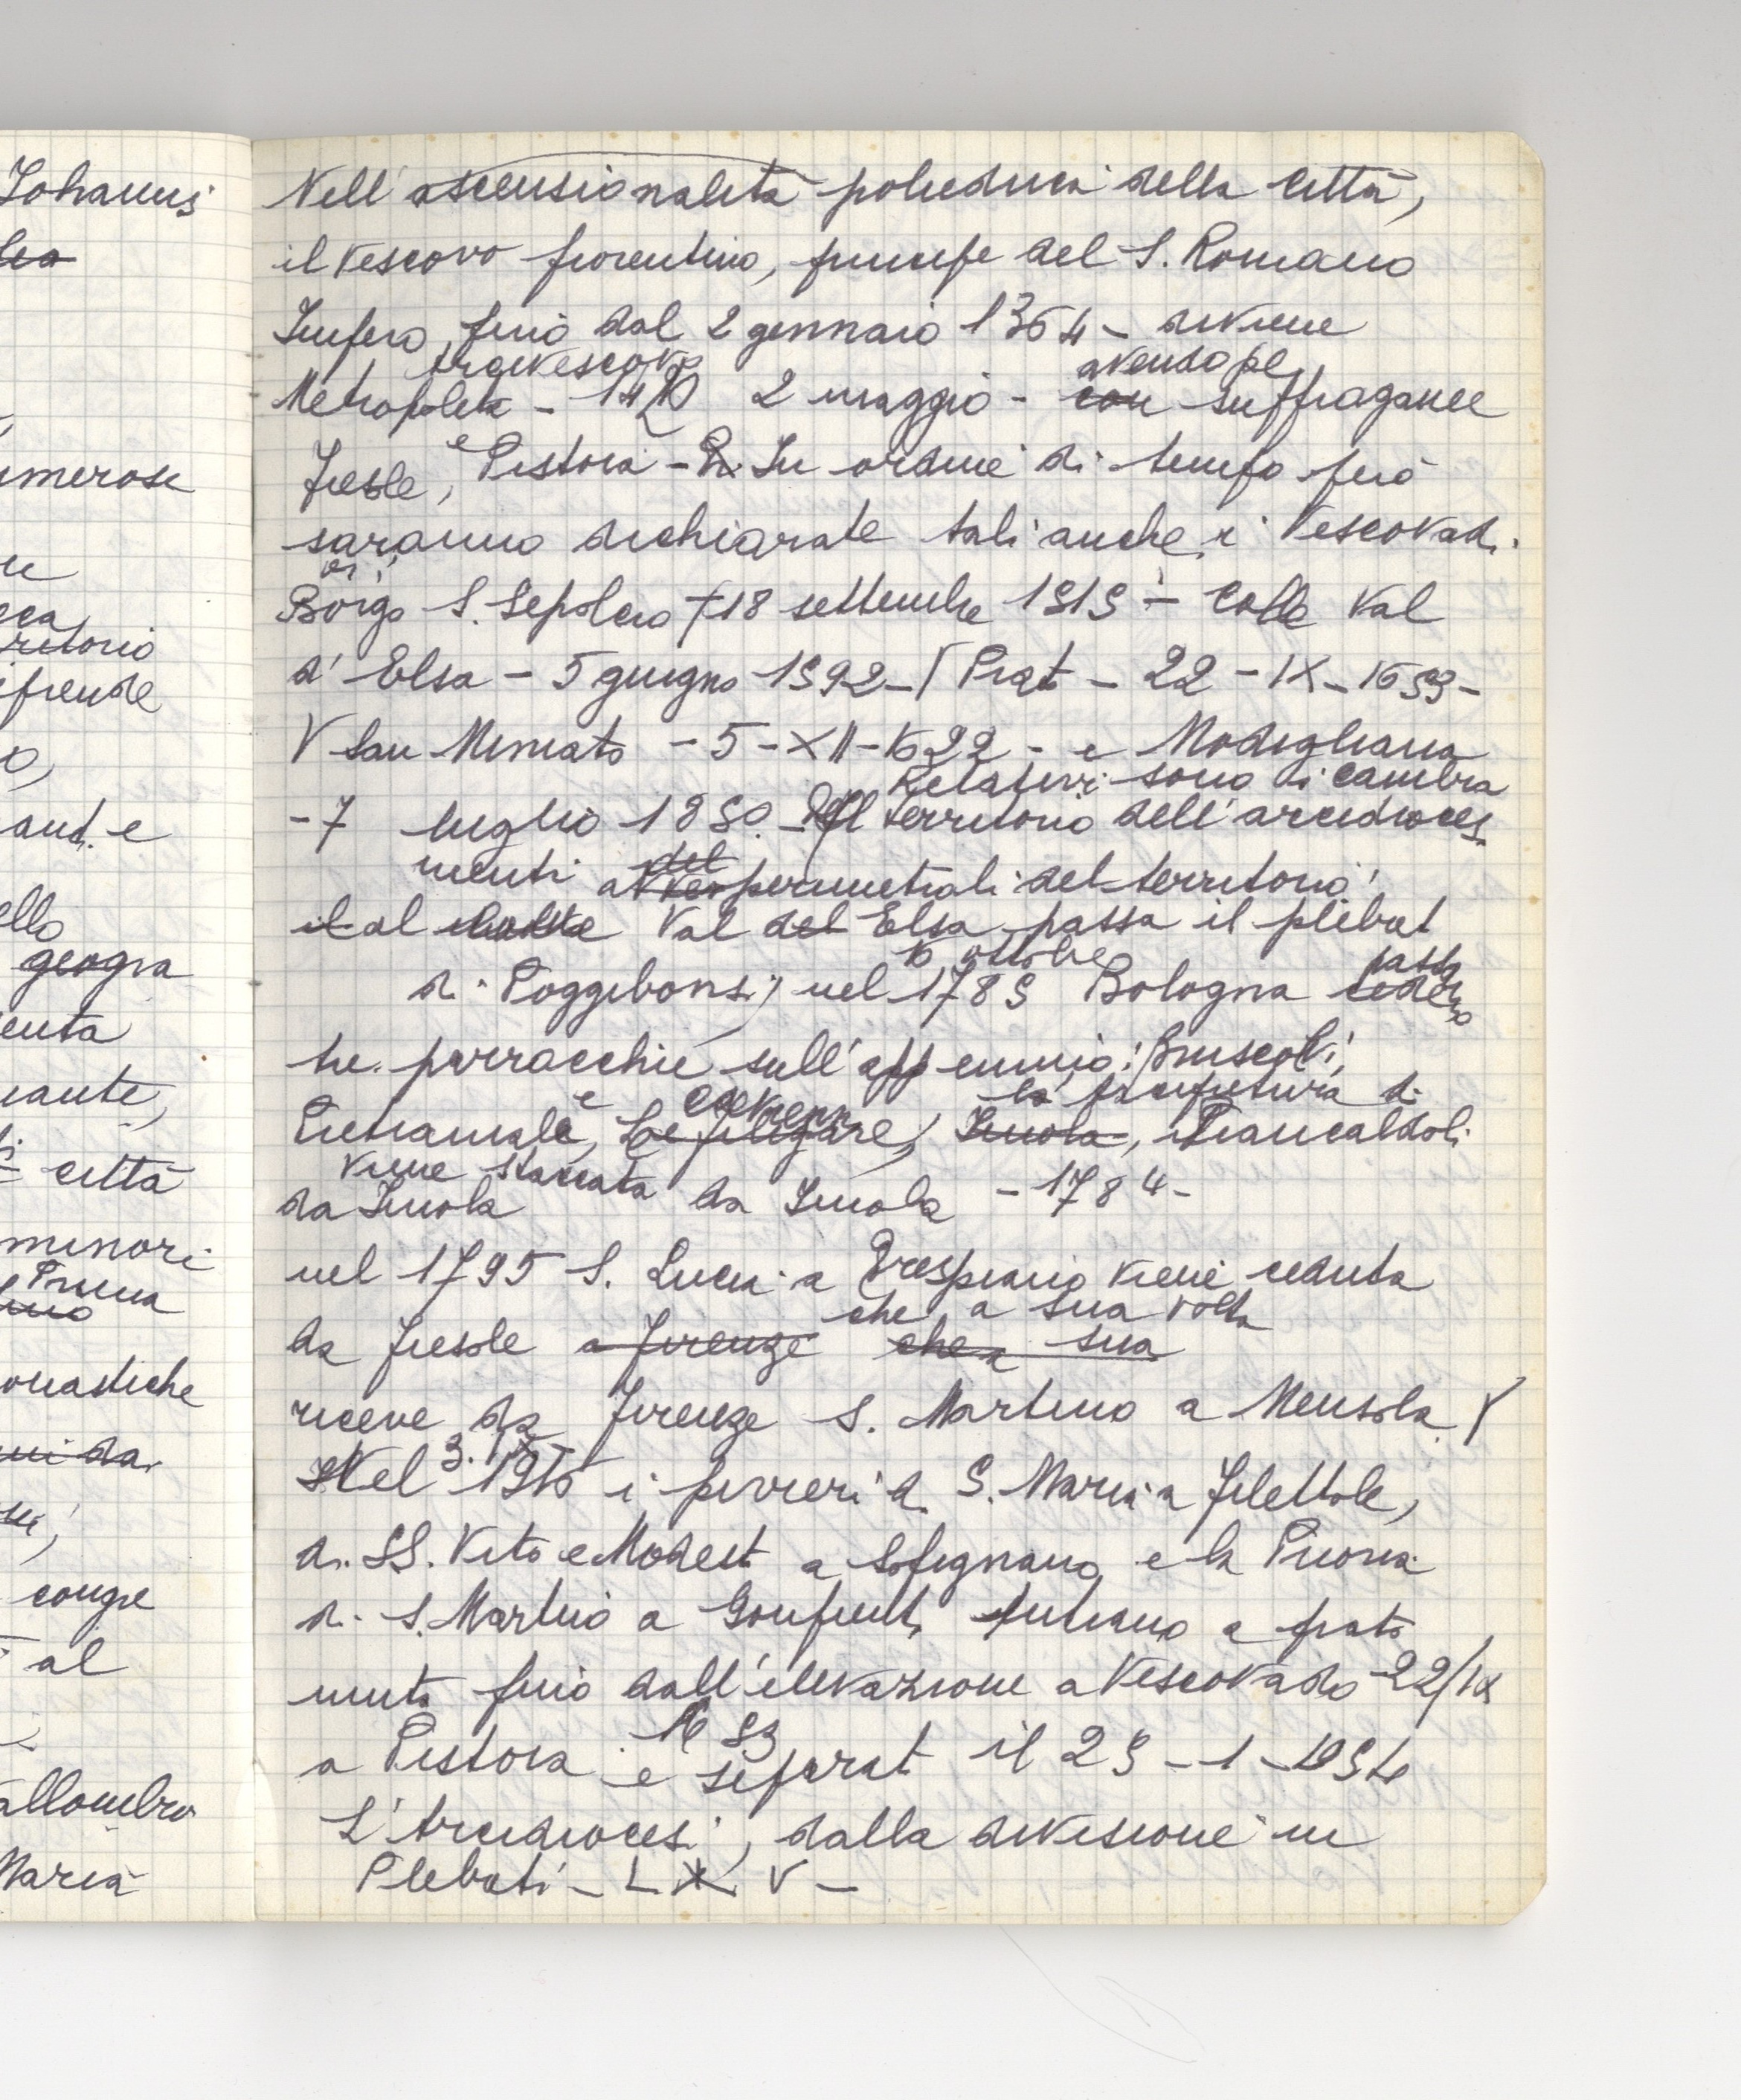 Johannis
merose
ritorio
prende
and. e
ello
geogra
enta
cante,
città
minori
Pruna
onastiche
ni da
congre
al
allombro
Maria
Nell'ascensionalità poliedrica della città,
il vescovo fiorentino, principe del S. Romano
Impero, fino dal 2 gennaio 1364 - diviene
Arcivescovo avendo per
Metropolita - 2 maggio - con suffraganee
Fiesole, e Pistoia - In ordine di tempo però
saranno dichiarate tali anche i Vescovadi
di
Borgo S. Sepolcro 18 settembre 1515 - Colle Val
d'Elsa - 5 giugno 1592 - Prat - 22 - IX - 1653 -
V San Miniato - 5 - XII - 1622 - e Modigliana
Relativi sono i cambia
- 7 luglio 1850 - territorio dell'arcidioces
menti del perimetrali del territorio
il al Val del Elsa passa il plebat
16 ottobre passa
di Poggibonsi, nel 1785 Bologna cedeno
tre parrocchie sull'appennino: Bruscoli,
e Cavrenno la prepositura di
Pietramala, Le filigare, Imola, Piancaldoli
viene staccata
da Imola da Imola - 1784 -
nel 1795 S. Lucia a Trespiano viene ceduta
che a sua volta
da Fiesole a Firenze che a sua
riceve da Firenze S. Martino a Mensola
3. IX
Nel 1916 i pivieri di S. Maria a Filettole,
di SS. Vito e Modest a Sofignano e la Prioria
di S. Martino a Gonfient, entrano a prato
unito fino dall'elevazione a Vescovado 22/IX
1653
a Pistoia e separat il 25 - 1 - 1954
L'Arcidiocesi, dalla divisione in
Plebati - L X V -